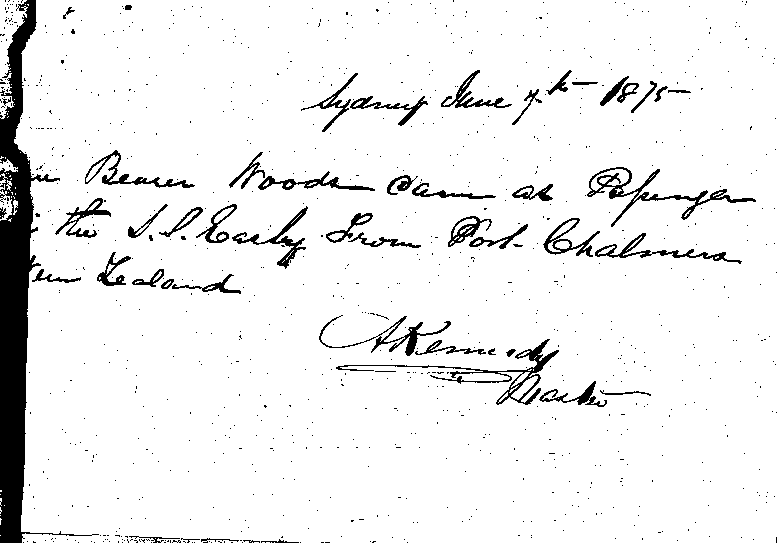 Sydney June 7th 1875
Bearer Woods Came as Passenger
the S.S. Easby From Port Chalmers
Zealand
AKennedy
Master